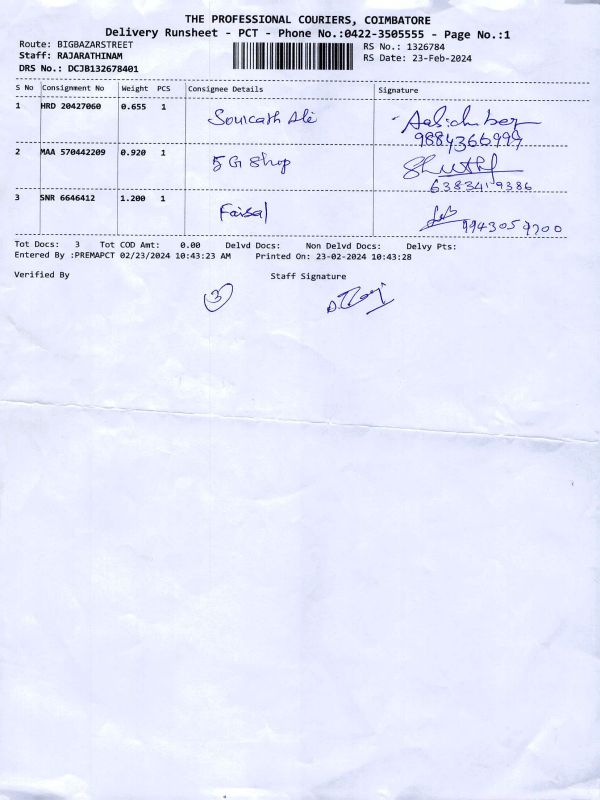 THE PROFESSIONAL COURIERS, COIMBATORE
Delivery Runsheet - PCT - Phone No.:0422-3505555 - Page No.:1
Route: BIGBAZARSTREET
RS No.: 1326784
Staff: RAJARATHINAM
RS Date: 23-Feb-2024
DRS No.: DCJB132678401
S No Consignment No Weight PCS Consignee Details Signature
1 HRD 20427060 0.655 1 Souicath Ali
9884366999
2 MAA 570442209 0.920 1 5G Shop
6383419386
3 SNR 6646412 1.200 1 Faisal
9943059700
Tot Docs: 3 Tot COD Amt: 0.00 Delvd Docs: Non Delvd Docs: Delvy Pts:
Entered By :PREMAPCT 02/23/2024 10:43:23 AM Printed On: 23-02-2024 10:43:28
Verified By Staff Signature
3